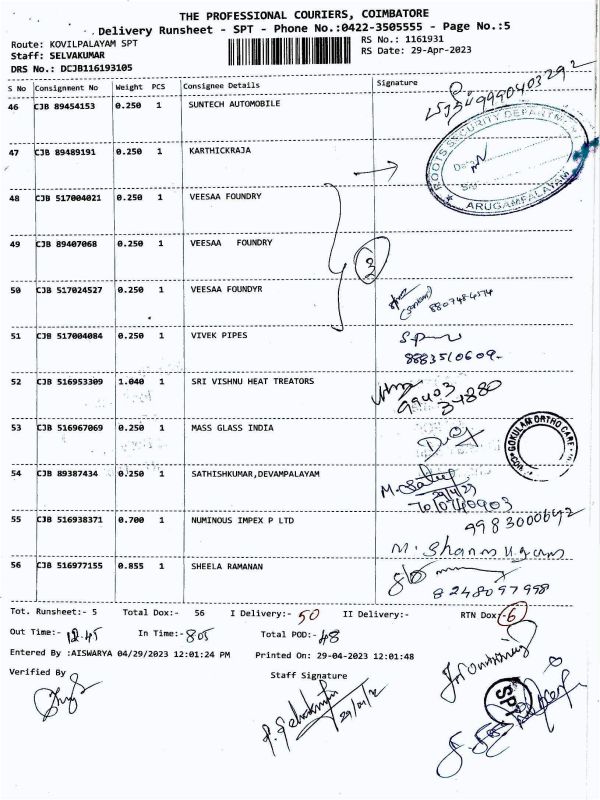 THE PROFESSIONAL COURIERS, COIMBATORE
Delivery Runsheet - SPT - Phone No.:0422-3505555 - Page No.:5
Route: KOVILPALAYAM SPT
RS No.: 1161931
Staff: SELVAKUMAR
RS Date: 29-Apr-2023
DRS No.: DCJB116193105
S No Consignment No Weight PCS Consignee Details Signature
46 CJB 89454153 0.250 1 SUNTECH AUTOMOBILE
9990403292
47 CJB 89489191 0.250 1 KARTHICKRAJA
ROOTS SECURITY DEPARTMENT
ARUGAMPALAYAM
48 CJB 517004021 0.250 1 VEESAA FOUNDRY
49 CJB 89407068 0.250 1 VEESAA FOUNDRY
3
50 CJB 517024527 0.250 1 VEESAA FOUNDYR
51 CJB 517004084 0.250 1 VIVEK PIPES
8883510609
52 CJB 516953309 1.040 1 SRI VISHNU HEAT TREATORS
99403
34880
53 CJB 516967069 0.250 1 MASS GLASS INDIA
GOKULAM ORTHO CARE
54 CJB 89387434 0.250 1 SATHISHKUMAR,DEVAMPALAYAM
29/4/23
55 CJB 516938371 0.700 1 NUMINOUS IMPEX P LTD
9983000642
M. Shanmugam
56 CJB 516977155 0.855 1 SHEELA RAMANAN
8248097998
Tot. Runsheet:- 5 Total Dox:- 56 I Delivery:- 50 II Delivery:- RTN Dox:- 6
Out Time:- 12.45 In Time:- 805 Total POD:- 48
Entered By :AISWARYA 04/29/2023 12:01:24 PM Printed On: 29-04-2023 12:01:48
Verified By
Staff Signature
SPT